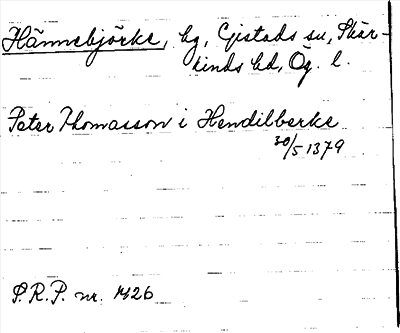 Hännebjörke, hg, Gistads sn, Skär-
kinds hd, Ög. l.
Peter Thomasson i Hendilberke
30/5 1379
S.R.P. nr. 1426